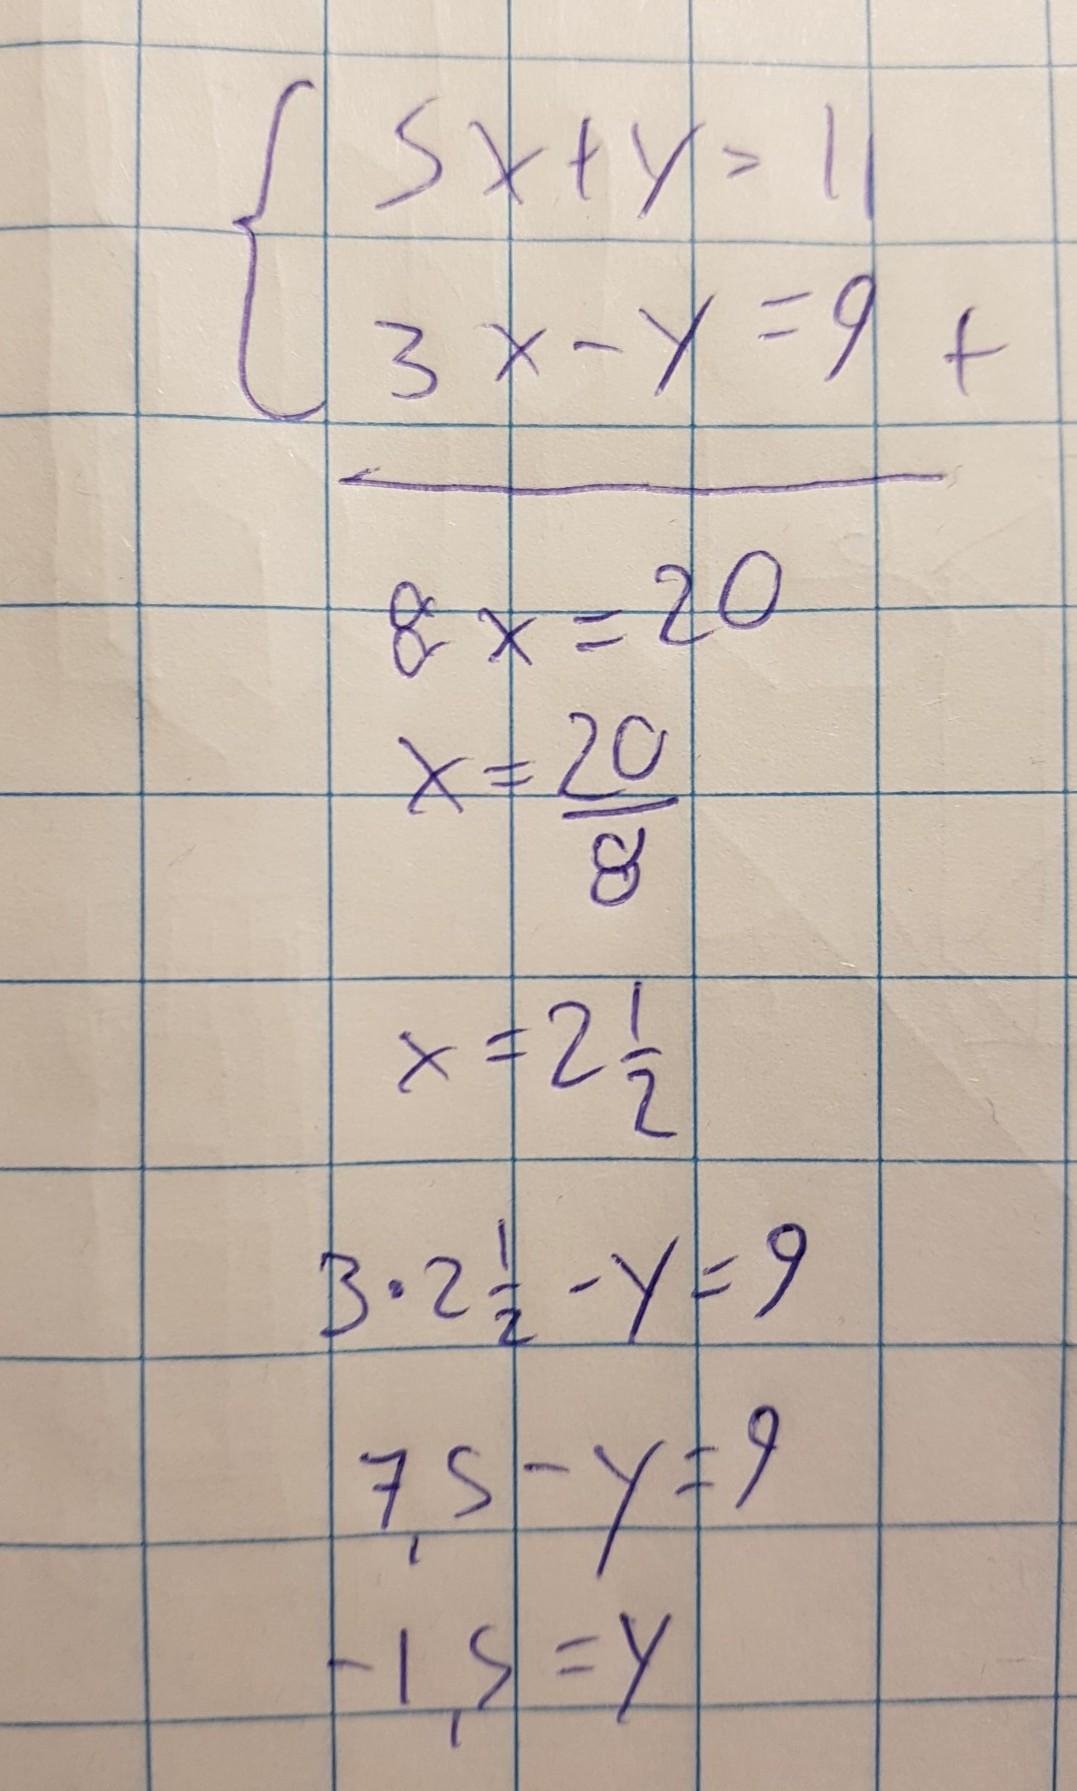 5x+y=11
3x-y=9 +
8x=20
x=20/8
x=2 1/2
3·2 1/2 -y=9
7,5-y=9
-1,5=y